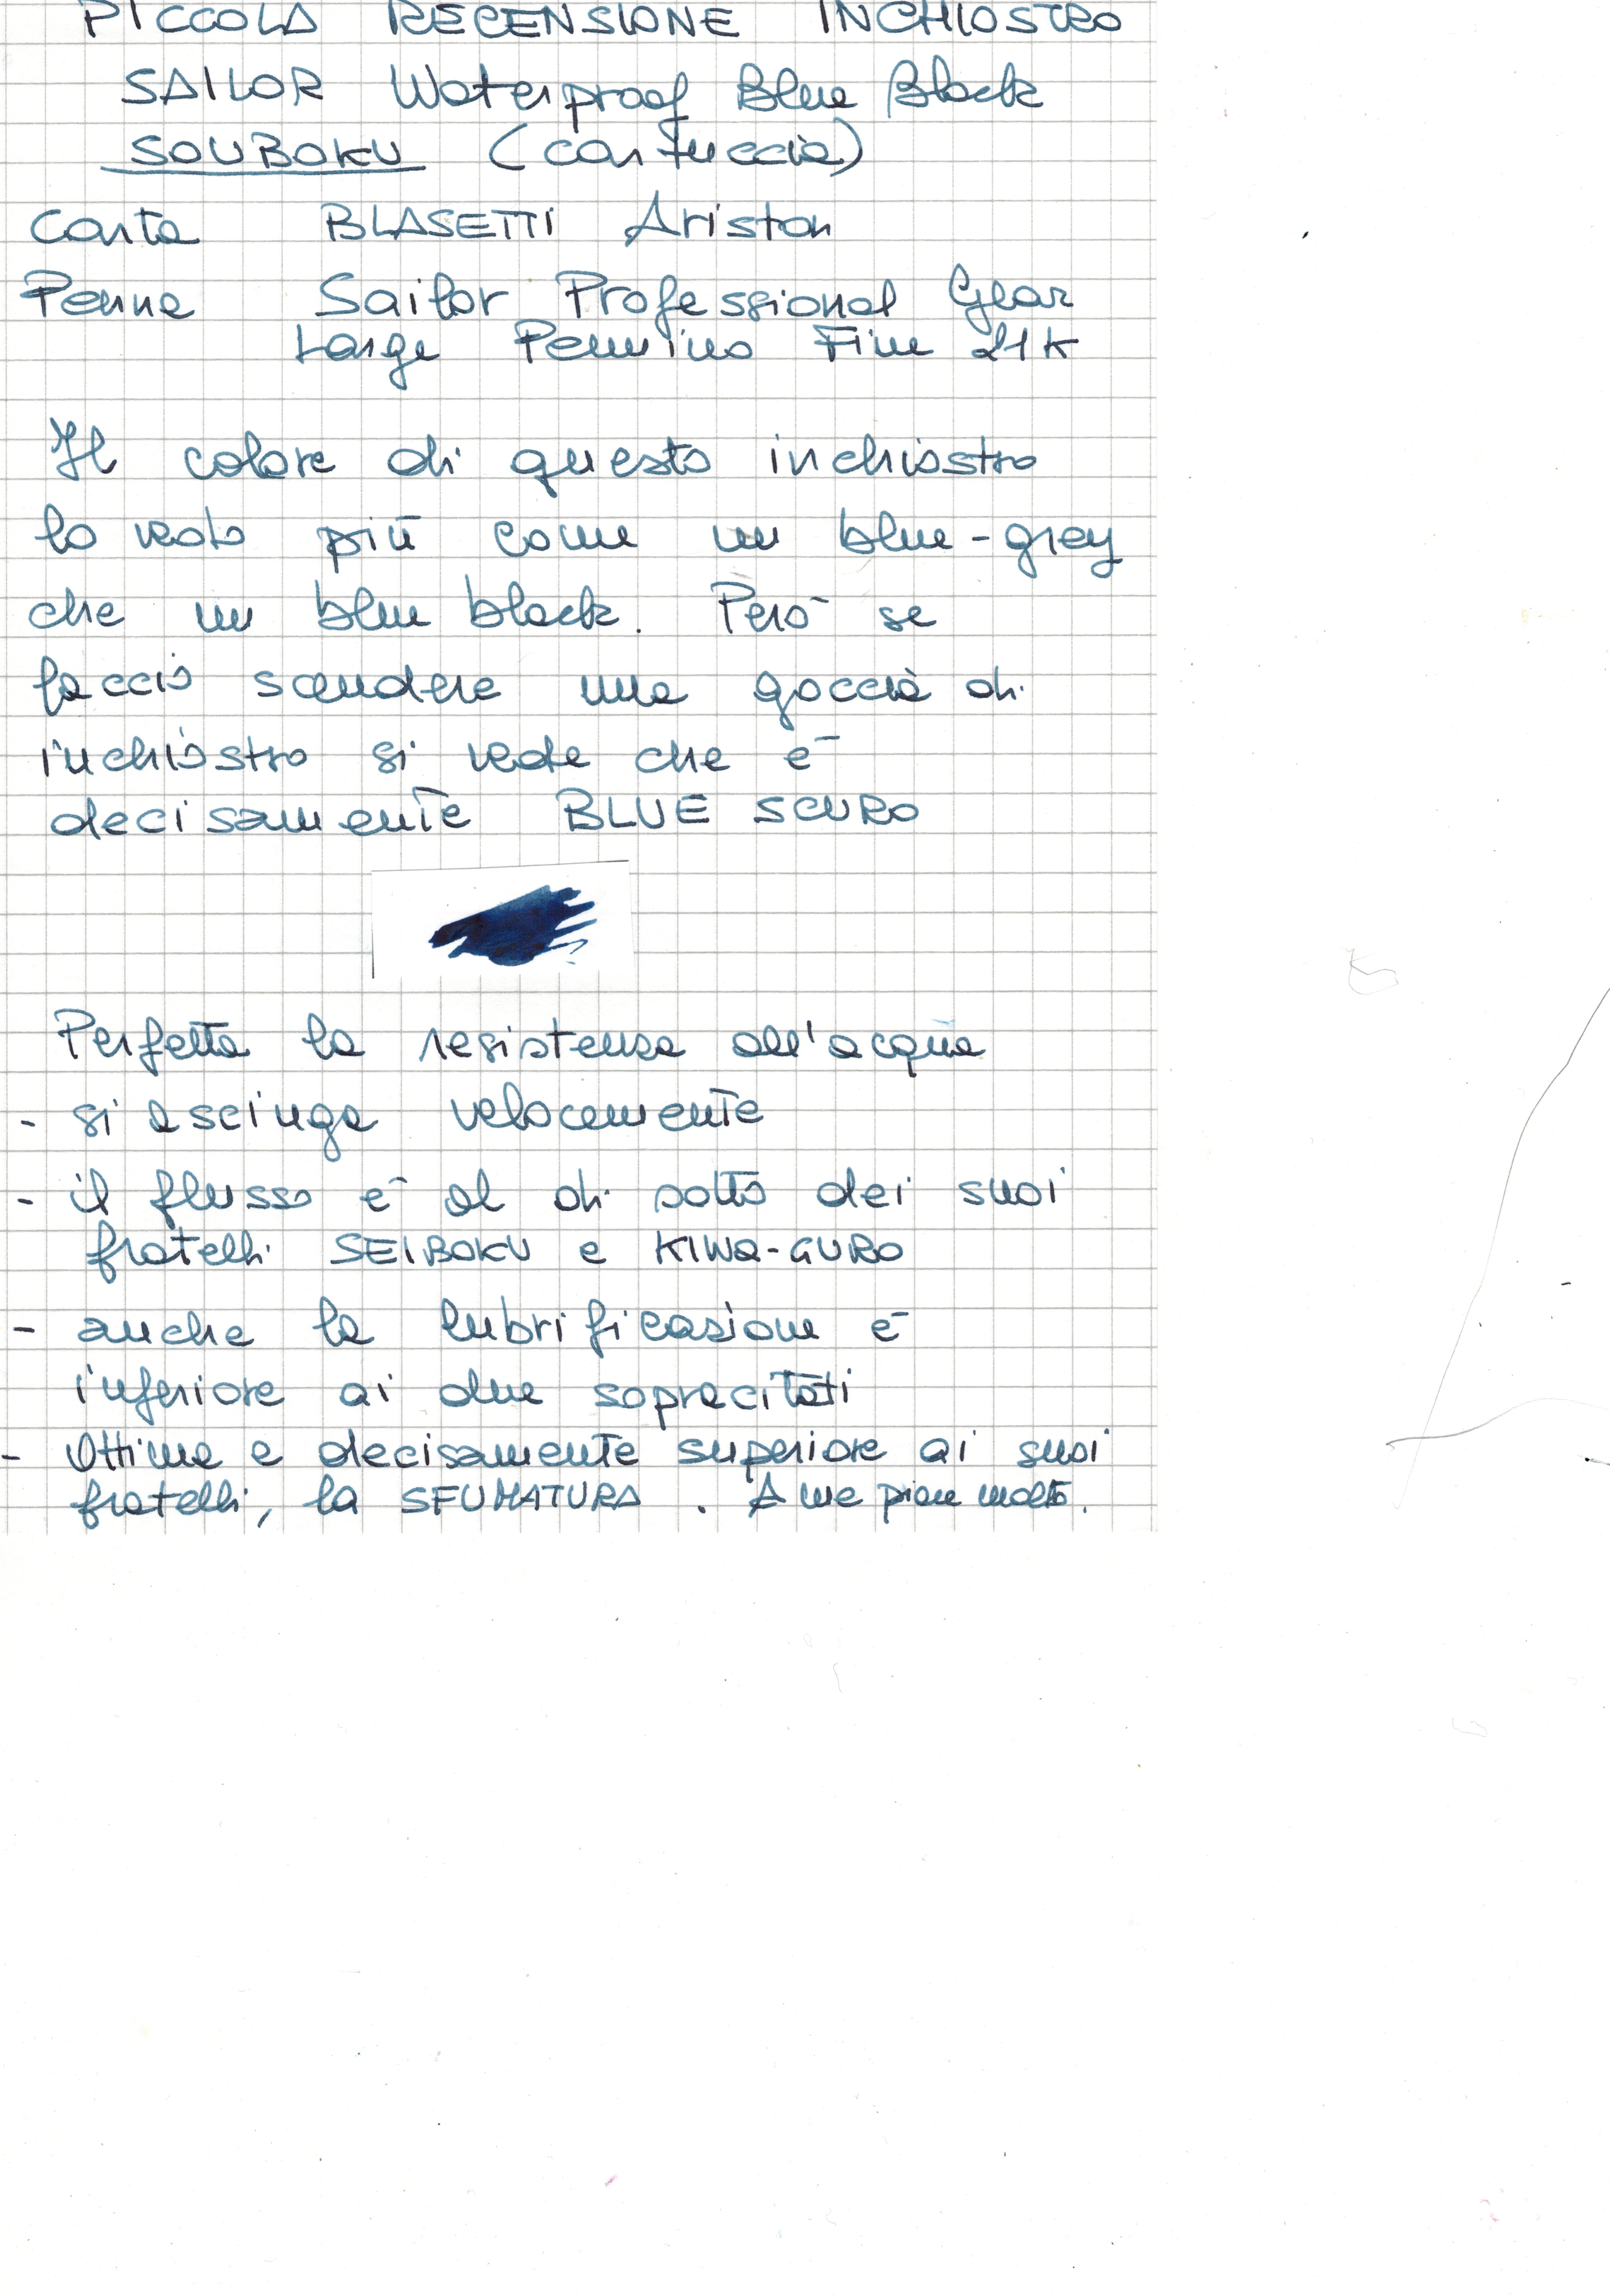 PICCOLA RECENSIONE INCHIOSTRO
SAILOR Waterproof Blue Black
SOUBOKU (cartuccia)
Carta BLASETTI Ariston
Penna Sailor Professional Gear
Large Pennino Fine 21K
Il colore di questo inchiostro
lo vedo più come un blue-grey
che un blue black. Però se
faccio scendere una goccia di
inchiostro si vede che è
decisamente BLUE SCURO
Perfetta la resistenza all'acqua
- si asciuga velocemente
- il flusso è al di sotto dei suoi
fratelli SEIBOKU e KIWA-GURO
- anche la lubrificazione è
inferiore ai due sopracitati
- Ottima e decisamente superiore ai suoi
fratelli, la SFUMATURA. A me piace molto.